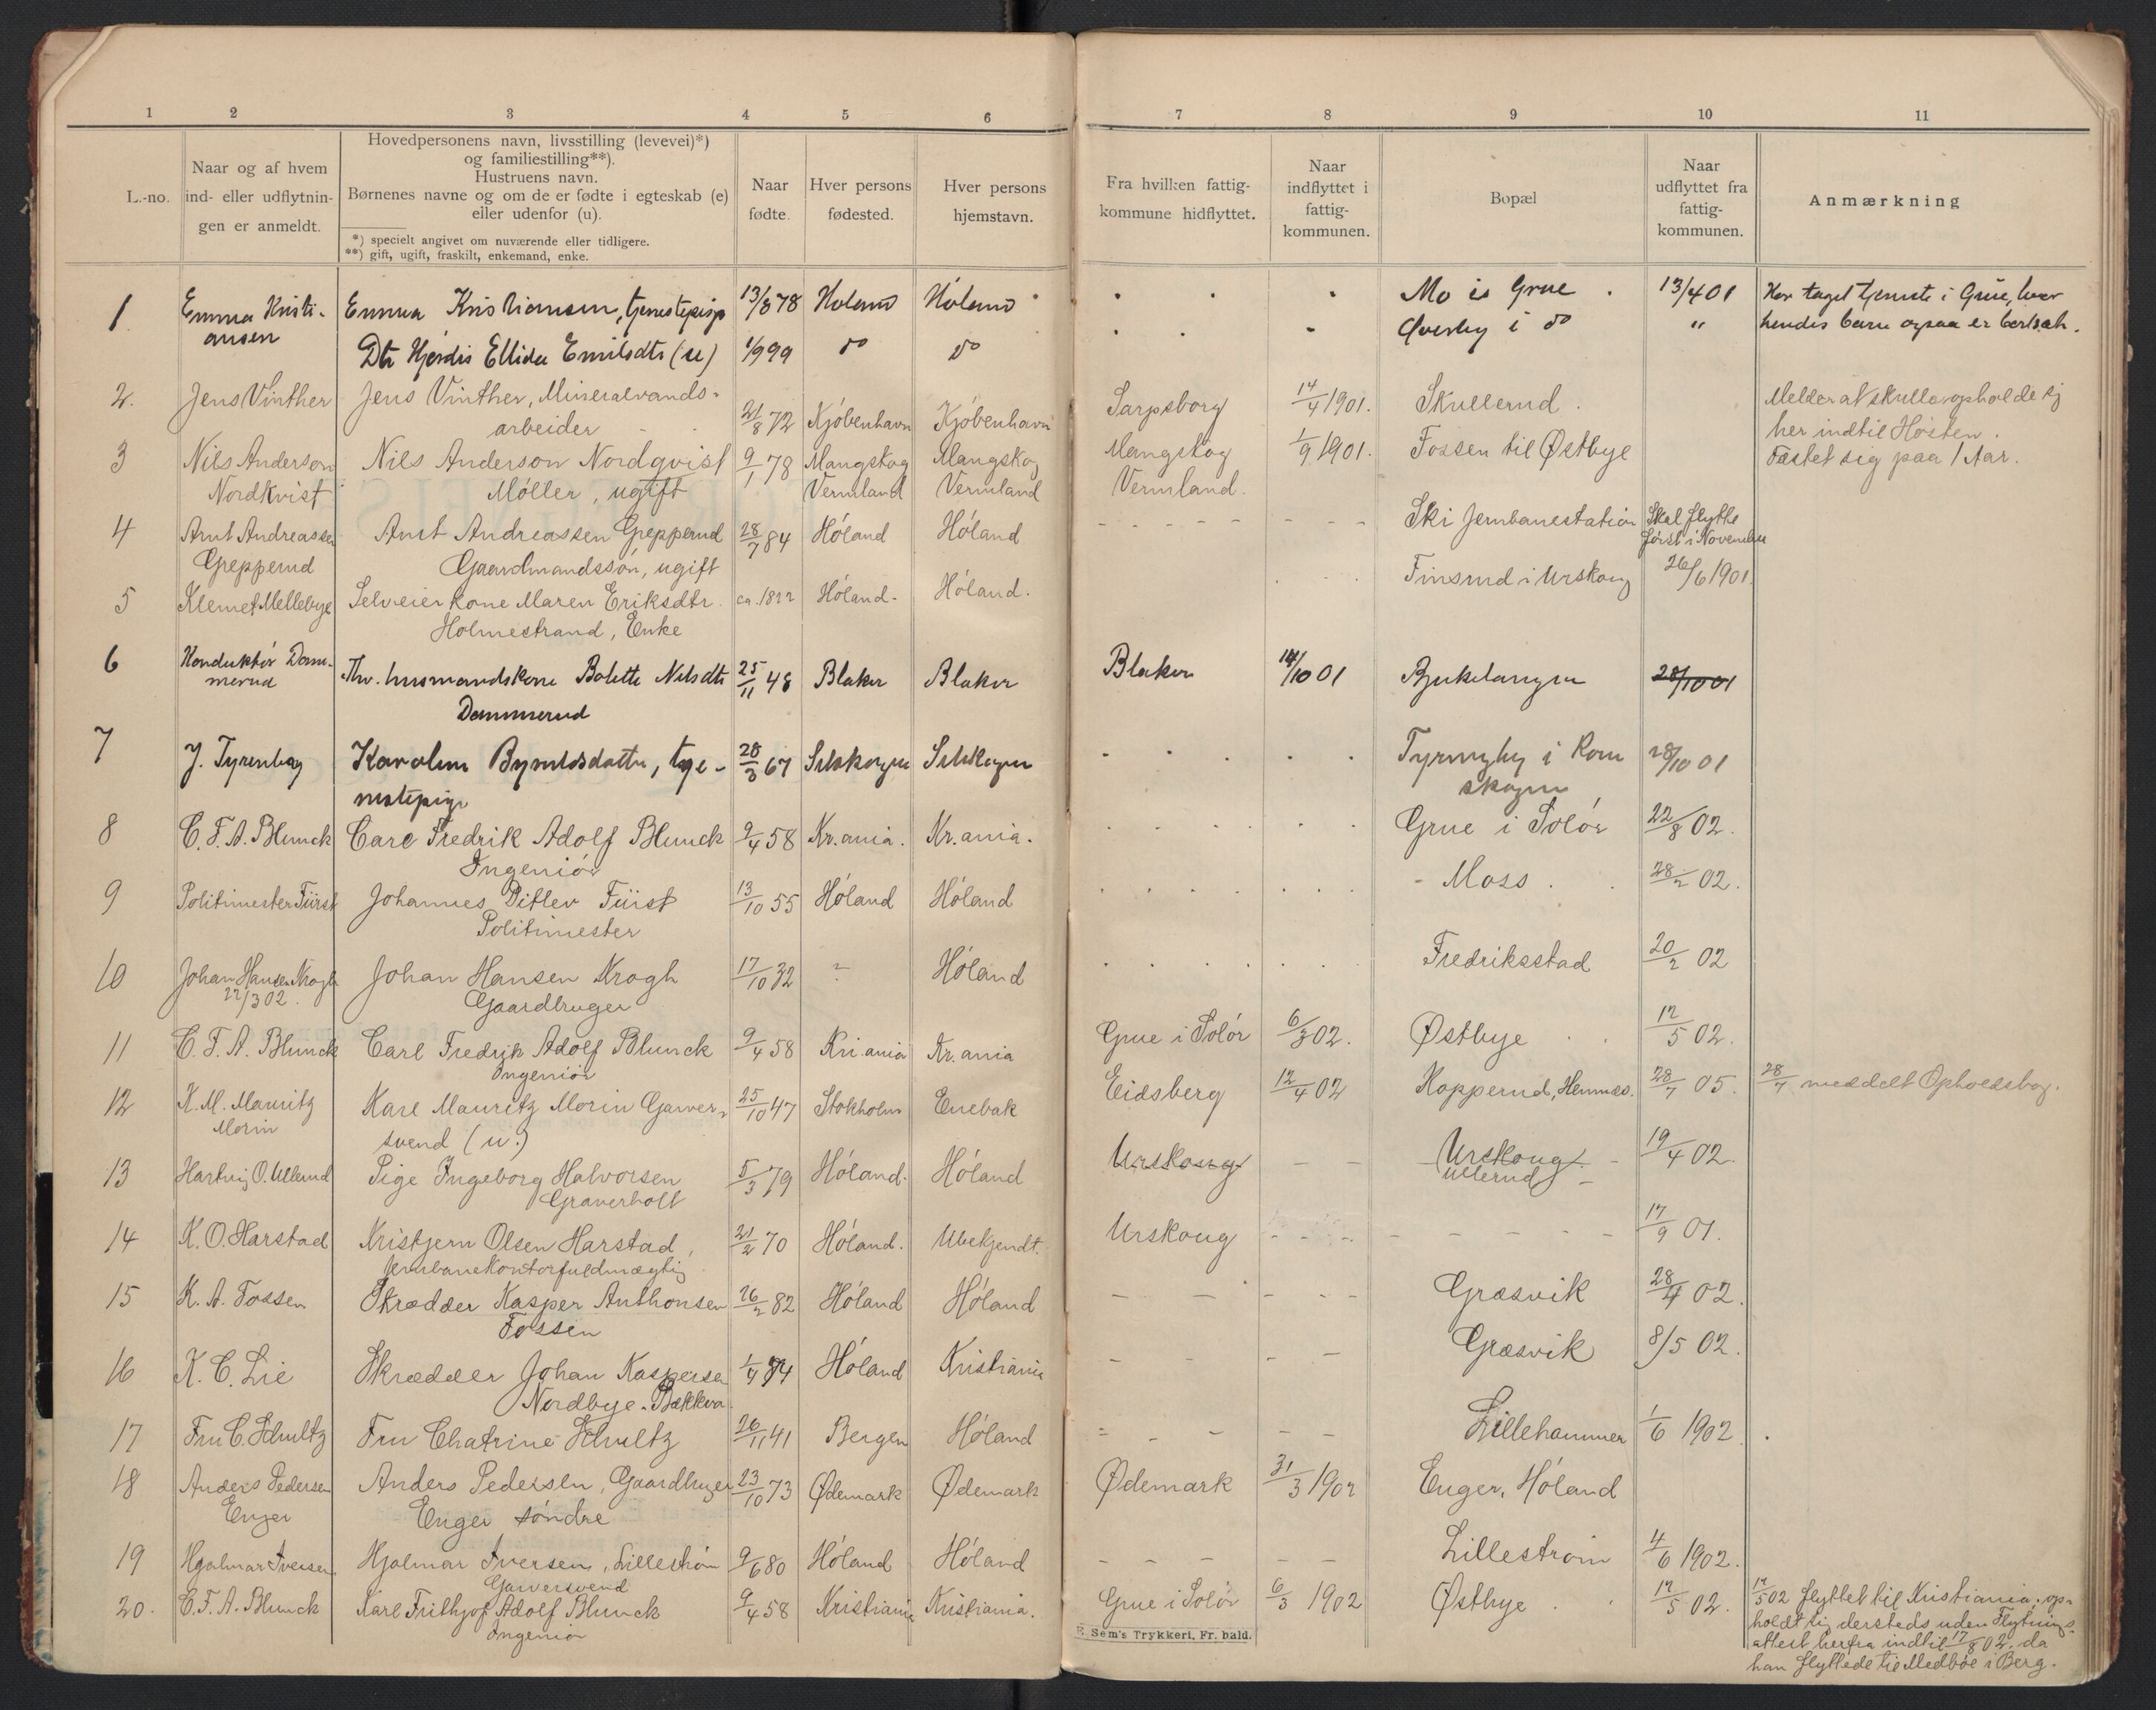 1 2 3 4 5 6 7 8 9 10 11
L.-no.
Naar og af hvem
ind- eller udflytnin-
gen er anmeldt.
Hovedpersonens navn, livsstilling (levevei)*)
og familiestilling**).
Hustruens navn.
Børnenes navne og om de er fødte i egteskab (e)
eller udenfor (u).
*) specielt angivet om nuværende eller tidligere.
**) gift, ugift, fraskilt, enkemand, enke.
Naar
fødte.
Hver persons
fødested.
Hver persons
hjemstavn.
Fra hvilken fattig-
kommune hidflyttet.
Naar
indflyttet i
fattig-
kommunen.
Bopæl
Naar
udflyttet fra
fattig-
kommunen.
Anmærkning
1 Emma Kristi- Emma Kristiansen, tjenestepige 13/8 78 Høland Høland Mo i Grue 13/4 01 Har taget tjeneste i Grue, hvor
ansen Dtr Hjørdis Ellida Emilsdtr (u) 1/9 99 do do Øverby i do " hendes barn ogsaa er bortsat.
2. Jens Vinther Jens Vinther, Mineralvands- 21/8 72 Kjóbenhavn Kjóbenhavn Sarpsborg 14/4 1901. Skullerud. Melder at skulle opholde sig
arbeider her indtil Høsten.
3 Nils Anderson Nils Anderson Nordqvist 9/1 78 Mangskog Mangskog Mangskog 1/9 1901. Fossen til Østbye Fæstet sig paa 1 Aar.
Nordkvist Møller, ugift Vermland Vermland Vermland.
4 Arnt Andreassen Arnt Andreassen Grepperud 28/7 84 Hóland Hóland Ski Jernbanestation Skal flytte
Grepperud Gaardmandssón, ugift først i November
5 Klemet Mellebye Selveierkone Maren Eriksdtr. ca. 1822 Hóland. Hóland. Finsrud i Urskoug 26/6 1901.
Holmestrand, Enke
6 Konduktør Dam- Fhv. husmandskone Bolette Nilsdtr 25/11 48 Blaker Blaker Blaker 14/10 01 Bjørkelangen 28/10 01
merud Dammerud
7 J. Tyrenborg Karoline Byrnildsdatter, tje- 28/3 67 Setskogen Setskogen Tyrengby i Rom 28/10 01
nestepige skogen
8 C. F. A. Blunck Carl Fredrik Adolf Blunck 9/4 58 Kr.ania. Kr.ania. Grue i Solór 22/8 02.
Ingeniór
9 Politimester Fürst Johannes Ditlev Fürst 13/10 55 Hóland Hóland Moss. 28/2 02.
Politimester
10 Johan Hansen Krogh Johan Hansen Krogh 17/10 32 - Hóland Fredriksstad 20/2 02
22/3 02. Gaardbruger
11 C. F. A. Blunck Carl Fredrik Adolf Blunck 9/4 58 Kri.ania Kr.ania Grue i Solór 6/3 02. Østbye 12/5 02.
Ingeniór
12 K. M. Mauritz Karl Mauritz Morin Garver- 25/10 47 Stokholm Enebak Eidsberg 12/4 02 Kopperud, Hemnæs. 28/7 05. 28/7 meddelt Opholdsbog.
Morin svend (u.)
13 Hartvig O. Ullerud Pige Ingeborg Halvorsen 5/3 79 Hóland. Hóland Urskoug Urskoug 19/4 02.
Graverholt Ullerud
14 K. O. Harstad Kristjern Olsen Harstad, 21/2 70 Hóland. Ubekjendt. Urskoug 17/9 01.
Jernbanekontorfuldmægtig
15 K. A. Fossen Skrædder Kasper Anthonsen 26/2 82 Hóland Hóland Græsvik 28/4 02.
Fossen
16 K. C. Lie Skrædder Johan Kaspersen 1/4 84 Hóland Kristiania Græsvik 8/5 02.
Nordbye-Bækkevar
17 Fru C. Schultz Fru Chatrine Schultz 26/11 41 Bergen Hóland Lillehammer 1/6 1902.
18 Anders Pedersen Anders Pedersen, Gaardbruger 23/10 73 Ødemark Ødemark Ødemark 31/3 1902 Enger, Hóland
Enger Enger søndre
19 Hjalmar Iversen Hjalmar Iversen, Lillestrøm 9/6 80 Hóland Hóland Lillestrøm 4/6 1902.
Garversvend
20. C. F. A. Blunck Karl Frithjof Adolf Blunck 9/4 58 Kristiania Kristiania. Grue i Solór 6/3 1902 Østbye 12/5 02. 12/5 02 flyttet til Kristiania, op-
Ingeniør holdt sig dersteds uden Flytnings-
attest herfra indtil 17/8 02, da
han flyttede til Medbøe i Berg.
E. Sem's Trykkeri, Fr. hald.